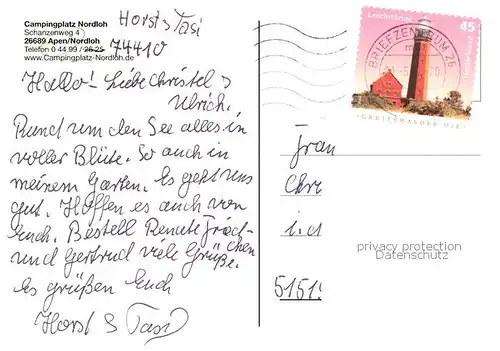 Campingplatz Nordloh
Schanzenweg 4
26689 Apen/Nordloh
Telefon 0 44 99 / 26 25
www.Campingplatz-Nordloh.de
Horst & Tasi
74410
Hallo! Liebe Christel &
Ulrich.
Rund um den See alles in
voller Blüte. So auch in
meinem Garten. Es geht uns
gut. Hoffen es auch von
Euch. Bestell Renate
und Gertrud viele Grüße.
Es grüßen Euch
Horst & Tasi
Leuchttürme
45
BRIEFZENTRUM 26
GREIFSWALDER OIE
Frau
Chr
privacy protection
Datenschutz
5151